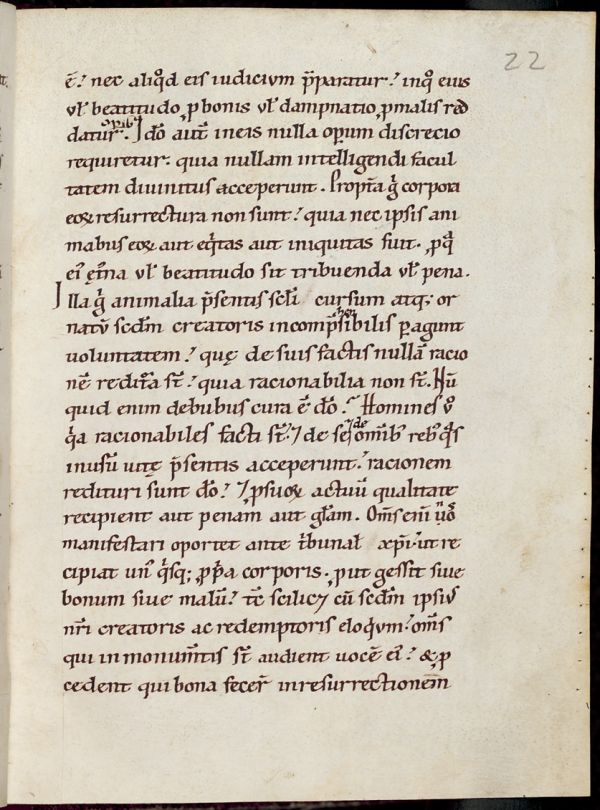 22
ē? nec aliqͦd eis iudicium p̄paratur? inq̊ eius
ul̄ beatitudo ꝓ bonis ul̄ dampnatio ꝓ malis red
datur. Ido aut̄ in eis nulla oꝑum discrecio
requiretur. quia nullam intelligendi facul
tatem divinitus acceperunt. Propt̄a g̊ corpora
eoꝝ resurrectura non sunt? quia nec ipsis ani
mabus eoꝝ aut eq̄tas aut iniquitas fuit. ꝓ qͣ
ei᷒ ęt̄na ul̄ beatitudo sit tribuenda ul̄ pena.
Illa g̊ animalia p̄sentis sc̄li cursum atq; or
natū sc̄dm creatoris incomp̄hensibilis ꝑagunt
voluntatem? quę de suis factis nullā racio
nē reditura st̄? quia racionabilia non st̄. Nū
quid enim de bubus cura ē dō? Homines ů
qͣa racionabiles facti st̄? ⁊ de se ⁊ de omīb; reb; qͣs
in usū uitę p̄sentis acceperunt? racionem
redituri sunt dō? ⁊ ꝓ suoꝝ actuū qualitate
recipient aut penam aut gl̄am. Om̄s eni᷒ nos
manifestari oportet ante t̄bunal xp̄i. ut re
cipiat un᷒ qͥsq; ꝓpͥa corporis. ꝓut gessit sive
bonum sive malū? tc̄ scilicꝫ cū sc̄dm ipsi᷒
nr̄i creatoris ac redemptoris eloqͥum? om̄s
qui in monum̄tis st̄ audient uocē ei᷒? & ꝓ
cedent qui bona fecer̄ in resurrectionem